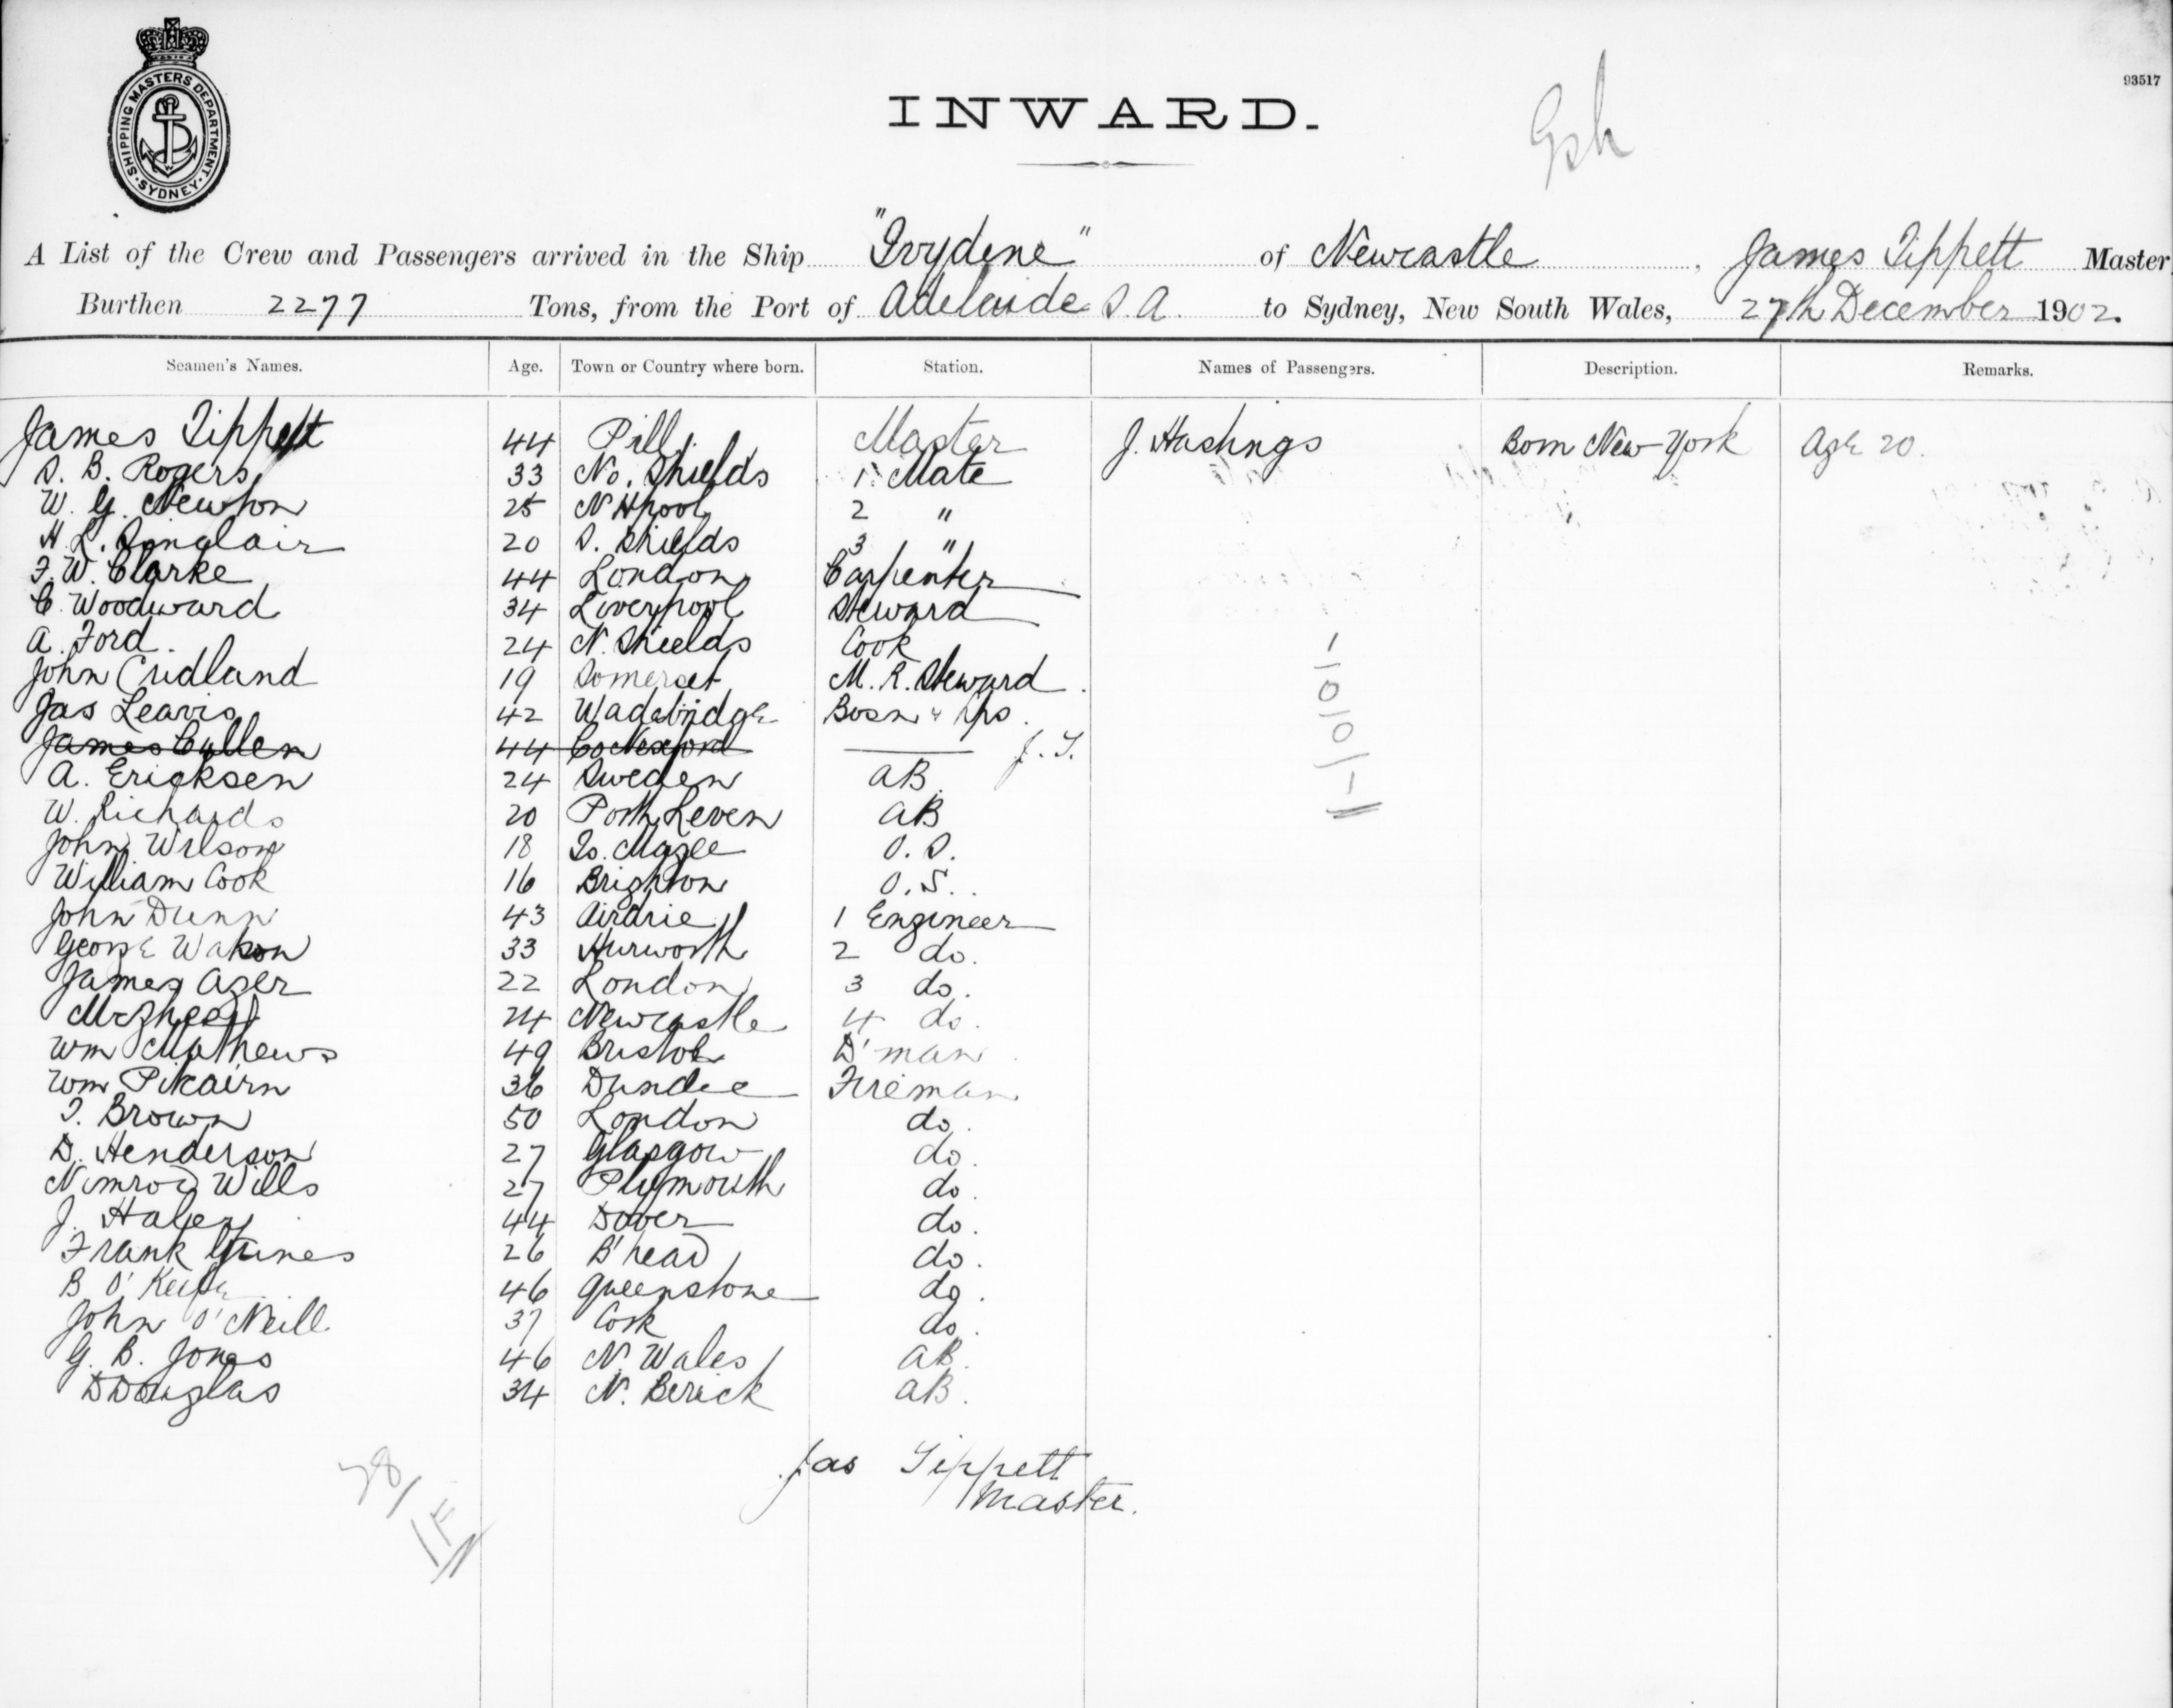 SHIPPING MASTERS DEPARTMENT · SYDNEY ·
93517
INWARD.
A List of the Crew and Passengers arrived in the Ship "Ivydene" of Newcastle, James Tippett Master
Burthen 2277 Tons, from the Port of Adelaide S.A. to Sydney, New South Wales, 27th December 1902.
Seamen's Names. Age. Town or Country where born. Station. Names of Passengers. Description. Remarks.
James Tippett 44 Pill Master J. Hastings Born New York Age 20.
S. B. Rogers 33 No. Shields 1 Mate
W. G. Newton 25 N Hpool 2 "
H. L. Sinclair 20 S. Shields 3 "
F. W. Clarke 44 London Carpenter
C. Woodward 34 Liverpool Steward
A. Ford. 24 N. Shields Cook
John Cridland 19 Somerset M. R. Steward.
Jas 42 Wadebridge Bosn &
James Cullen 44 Co Wexford J. T.
A. Ericksen 24 Sweden AB.
W. Richards 20 Porth Leven AB
John Wilson 18 Is. Magee O. S.
William Cook 16 Brighton O. S.
John Dunn 43 Airdrie 1 Engineer
George Watson 33 Hurworth 2 do.
James Ager 22 London 3 do.
24 Newcastle 4 do.
Wm Mathews 49 Bristol D'man
Wm Pikairn 36 Dundee Fireman
T. Brown 50 London do.
D. Henderson 27 Glasgow do.
Nimrod Wills 27 Plymouth do.
J. 44 Dover do.
Frank 26 B'head do.
B O'Keife 46 Queenstone do.
John O'Neill 37 Cork do.
G. B. Jones 46 N. Wales AB.
D Douglas 34 N. Berick AB.
Jas Tippett
Master.